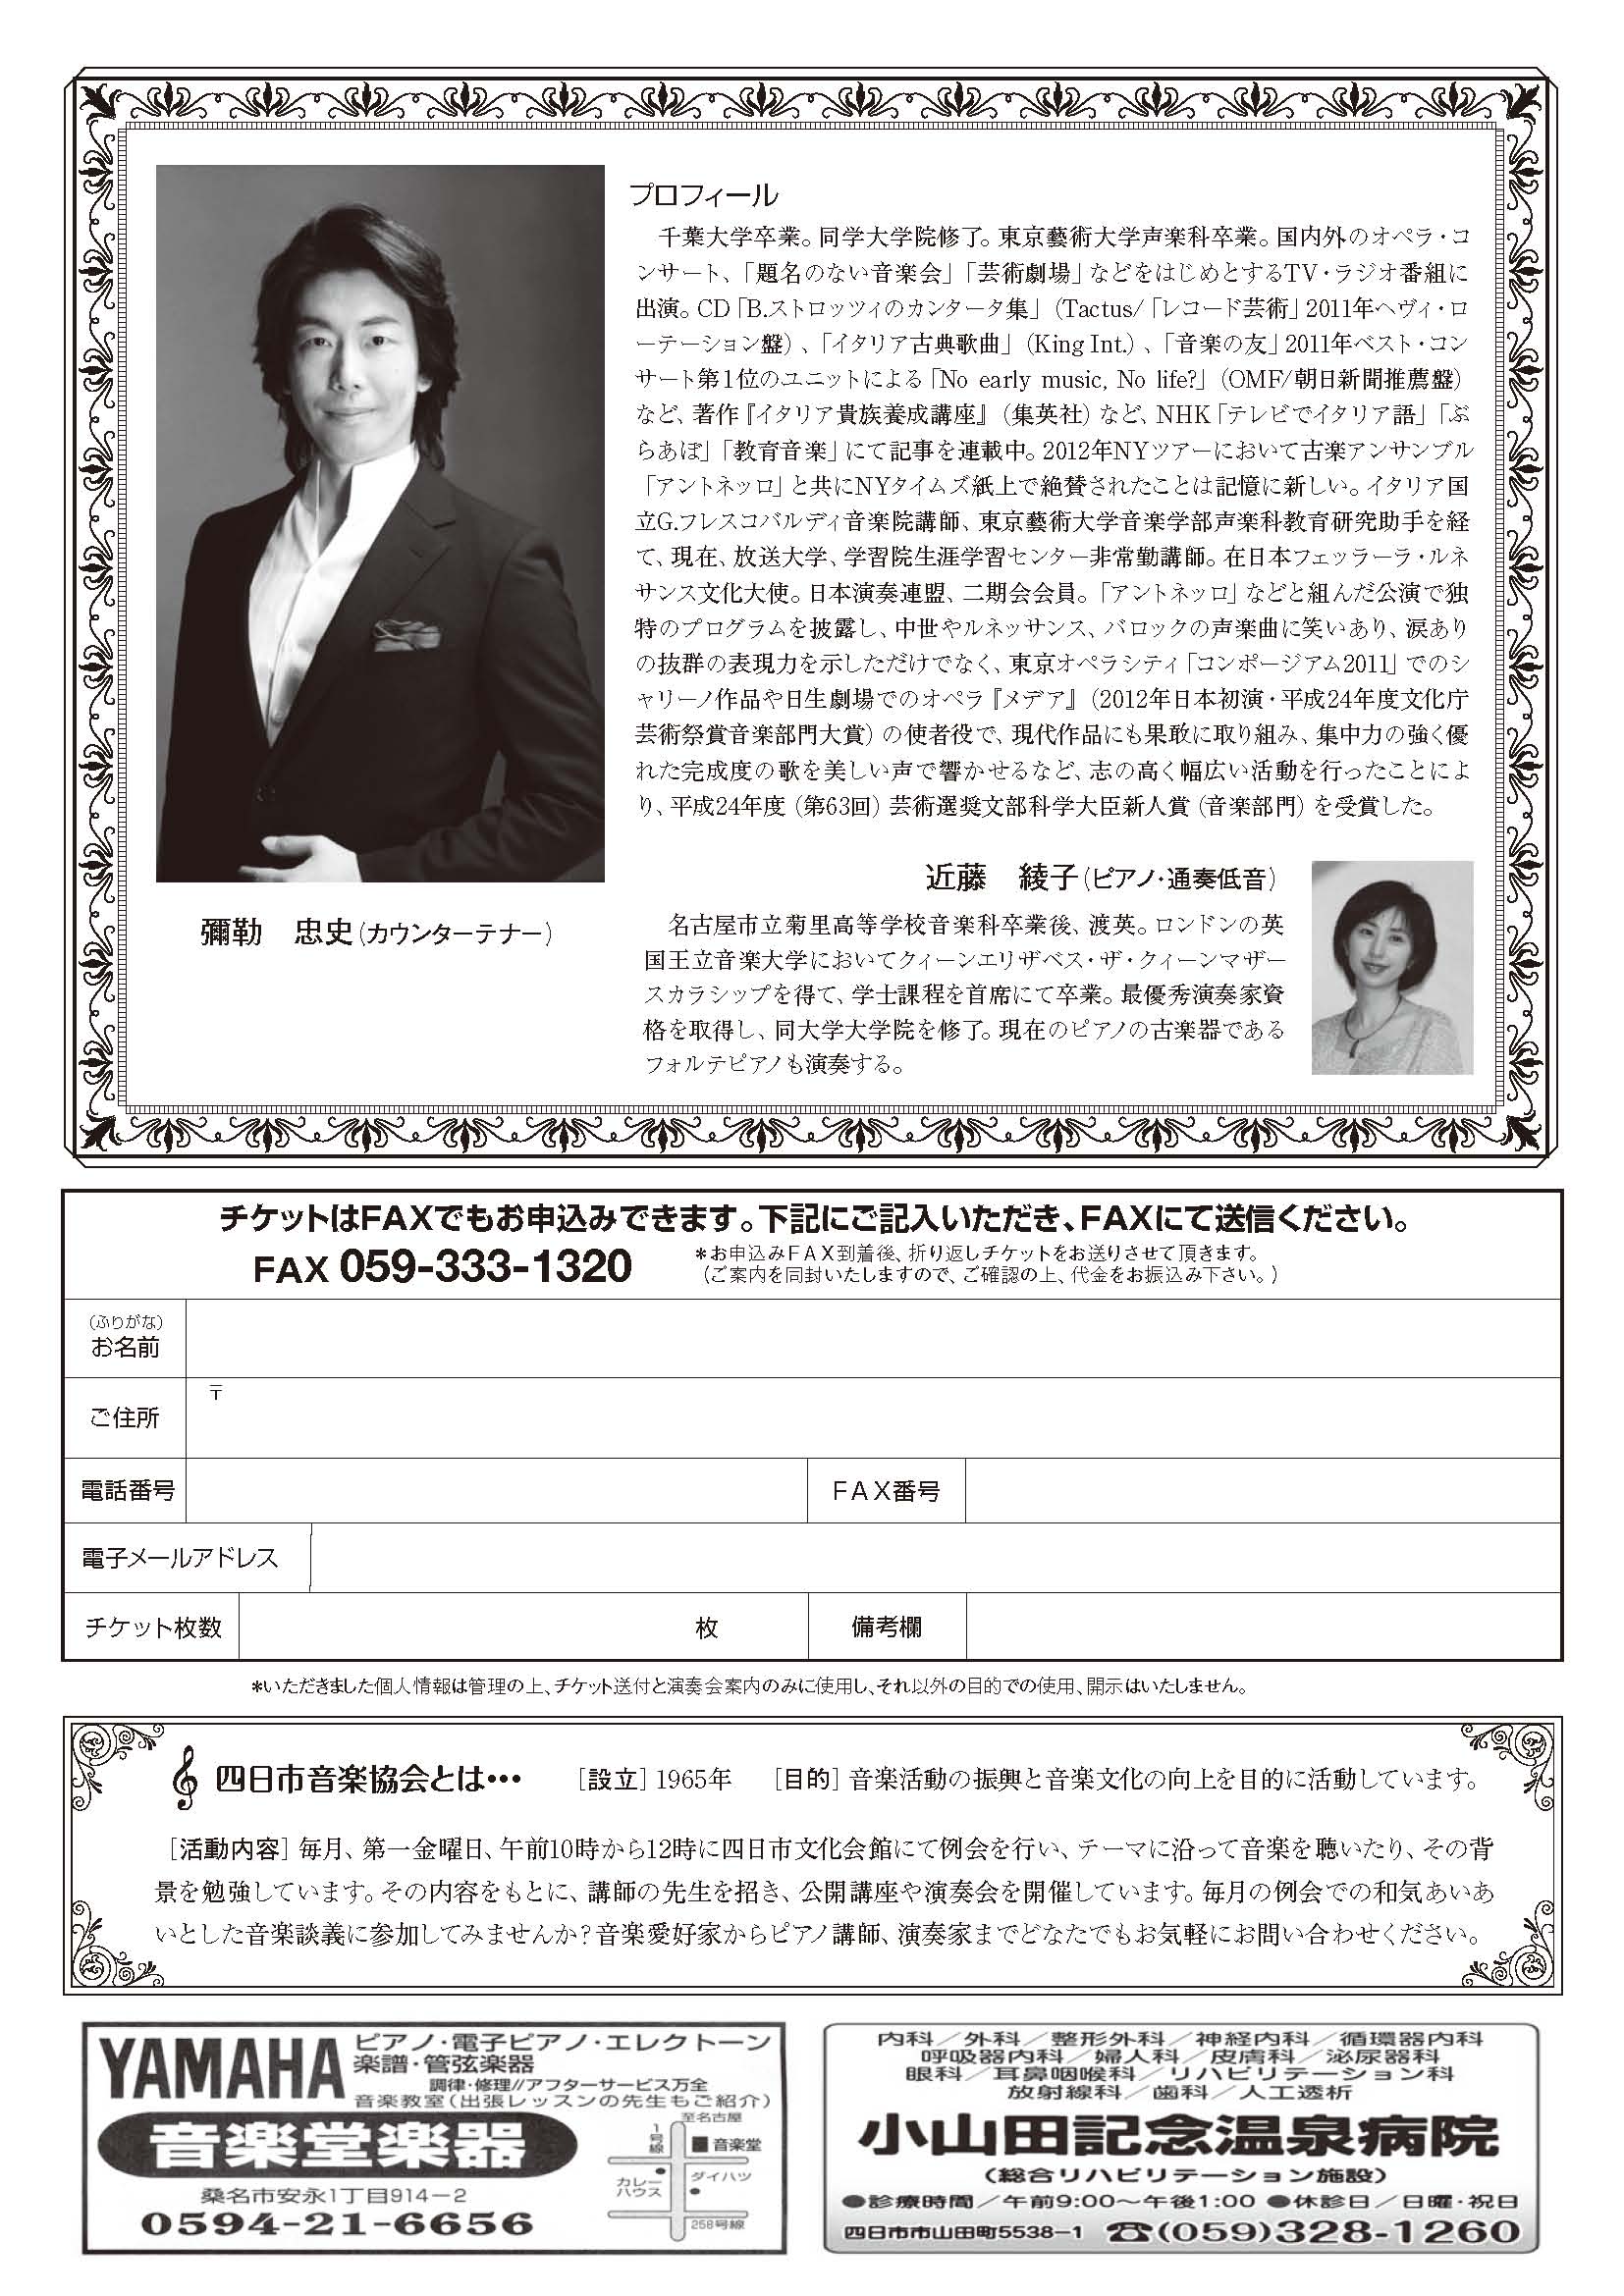 プロフィール
千葉大学卒業。同学大学院修了。東京藝術大学声楽科卒業。国内外のオペラ・コ
ンサート、「題名のない音楽会」「芸術劇場」などをはじめとするTV・ラジオ番組に
出演。CD「B.ストロッツィのカンタータ集」（Tactus/「レコード芸術」2011年ヘヴィ・ロ
ーテーション盤）、「イタリア古典歌曲」（King Int.）、「音楽の友」2011年ベスト・コン
サート第1位のユニットによる「No early music, No life?」（OMF/朝日新聞推薦盤）
など、著作『イタリア貴族養成講座』（集英社）など、NHK「テレビでイタリア語」「ぶ
らあぼ」「教育音楽」にて記事を連載中。2012年NYツアーにおいて古楽アンサンブル
「アントネッロ」と共にNYタイムズ紙上で絶賛されたことは記憶に新しい。イタリア国
立G.フレスコバルディ音楽院講師、東京藝術大学音楽学部声楽科教育研究助手を経
て、現在、放送大学、学習院生涯学習センター非常勤講師。在日本フェッラーラ・ルネ
サンス文化大使。日本演奏連盟、二期会会員。「アントネッロ」などと組んだ公演で独
特のプログラムを披露し、中世やルネッサンス、バロックの声楽曲に笑いあり、涙あり
の抜群の表現力を示しただけでなく、東京オペラシティ「コンポージアム2011」でのシ
ャリーノ作品や日生劇場でのオペラ『メデア』（2012年日本初演・平成24年度文化庁
芸術祭賞音楽部門大賞）の使者役で、現代作品にも果敢に取り組み、集中力の強く優
れた完成度の歌を美しい声で響かせるなど、志の高く幅広い活動を行ったことによ
り、平成24年度（第63回）芸術選奨文部科学大臣新人賞（音楽部門）を受賞した。
彌勒　忠史（カウンターテナー）
近藤　綾子（ピアノ・通奏低音）
名古屋市立菊里高等学校音楽科卒業後、渡英。ロンドンの英
国王立音楽大学においてクィーンエリザベス・ザ・クィーンマザー
スカラシップを得て、学士課程を首席にて卒業。最優秀演奏家資
格を取得し、同大学大学院を修了。現在のピアノの古楽器である
フォルテピアノも演奏する。
チケットはFAXでもお申込みできます。下記にご記入いただき、FAXにて送信ください。
FAX 059-333-1320
＊お申込みFAX到着後、折り返しチケットをお送りさせて頂きます。
（ご案内を同封いたしますので、ご確認の上、代金をお振込み下さい。）
（ふりがな）
お名前
ご住所
〒
電話番号
FAX番号
電子メールアドレス
チケット枚数
枚
備考欄
＊いただきました個人情報は管理の上、チケット送付と演奏会案内のみに使用し、それ以外の目的での使用、開示はいたしません。
四日市音楽協会とは… ［設立］1965年 ［目的］音楽活動の振興と音楽文化の向上を目的に活動しています。
［活動内容］毎月、第一金曜日、午前10時から12時に四日市文化会館にて例会を行い、テーマに沿って音楽を聴いたり、その背
景を勉強しています。その内容をもとに、講師の先生を招き、公開講座や演奏会を開催しています。毎月の例会での和気あいあ
いとした音楽談義に参加してみませんか？音楽愛好家からピアノ講師、演奏家までどなたでもお気軽にお問い合わせください。
YAMAHA
ピアノ・電子ピアノ・エレクトーン
楽譜・管弦楽器
調律・修理//アフターサービス万全
音楽教室（出張レッスンの先生もご紹介）
音楽堂楽器
桑名市安永1丁目914－2
0594-21-6656
至名古屋
1号線
音楽堂
カレーハウス
ダイハツ
258号線
内科／外科／整形外科／神経内科／循環器内科
呼吸器内科／婦人科／皮膚科／泌尿器科
眼科／耳鼻咽喉科／リハビリテーション科
放射線科／歯科／人工透析
小山田記念温泉病院
（総合リハビリテーション施設）
●診療時間／午前9:00～午後1:00 ●休診日／日曜・祝日
四日市市山田町5538－1 ☎(059)328-1260